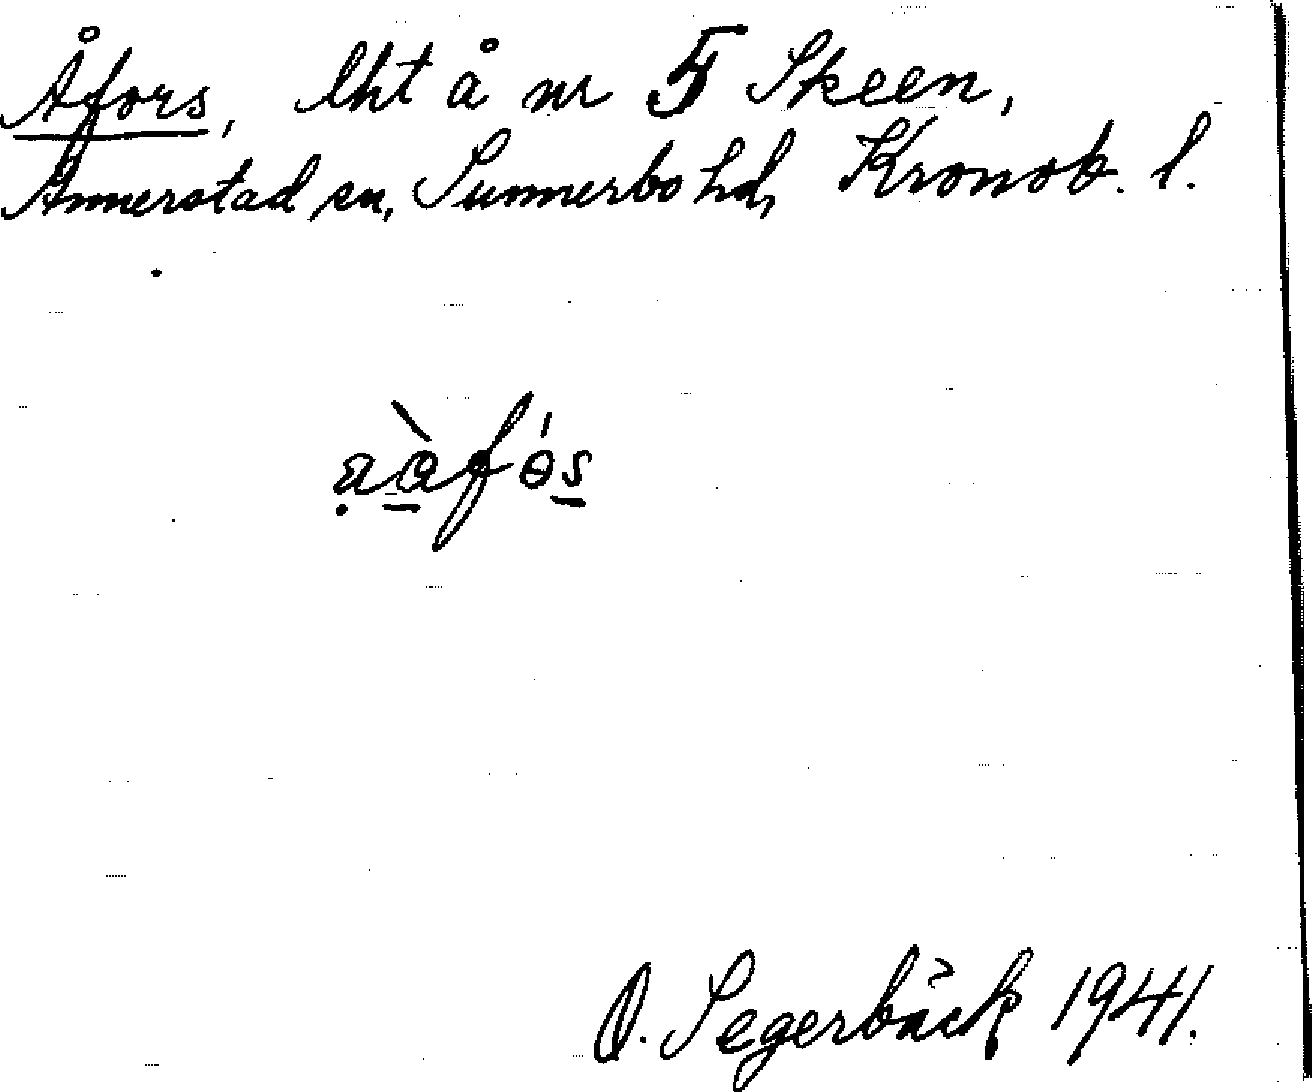 Åfors, lht å nr 5 Skeen,
Annerstad sn, Sunnerbo hd, Kronob. l.
O. Segerbäck 1941.